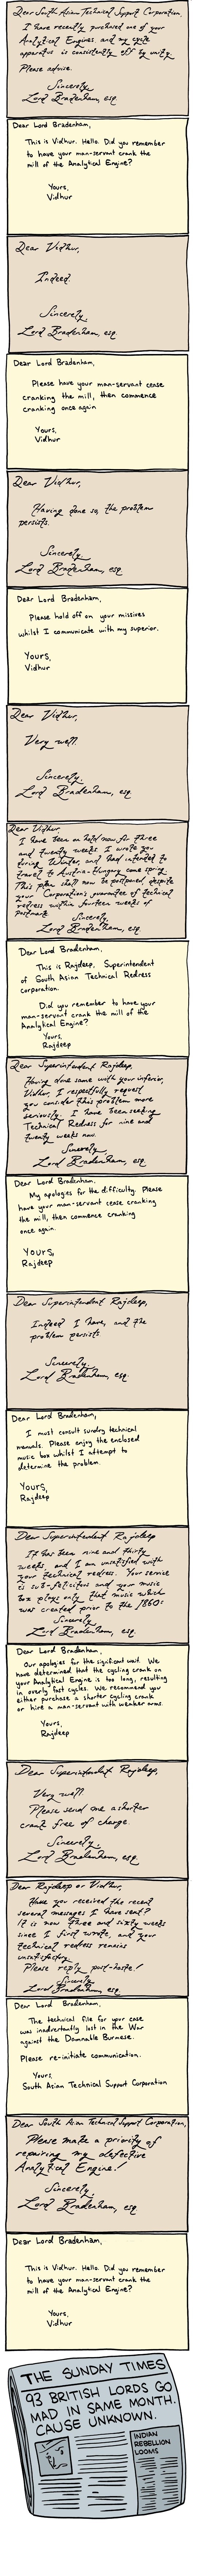 Dear South Asian Technical Support Corporation,
I have recently purchased one of your
Analytical Engines, and my cycle
apparatus is consistently off by unity.
Please advise.
Sincerely,
Lord Bradenham, esq.
Dear Lord Bradenham,
This is Vidhur. Hello. Did you remember
to have your man-servant crank the
mill of the Analytical Engine?
Yours,
Vidhur
Dear Vidhur,
Indeed.
Sincerely,
Lord Bradenham, esq.
Dear Lord Bradenham,
Please have your man-servant cease
cranking the mill, then commence
cranking once again
Yours,
Vidhur
Dear Vidhur,
Having done so, the problem
persists.
Sincerely
Lord Bradenham, esq.
Dear Lord Bradenham,
Please hold off on your missives
whilst I communicate with my superior.
Yours,
Vidhur
Dear Vidhur,
Very well.
Sincerely,
Lord Bradenham, esq
Dear Vidhur,
I have been on hold now for three
and twenty weeks. I wrote you
during Winter, and had intended to
travel to Austria-Hungary come spring.
This plan shall now be postponed despite
your Corporation's guarantee of technical
redress within fourteen weeks of
postmark.
Sincerely,
Lord Bradenham, esq.
Dear Lord Bradenham,
This is Rajdeep, Superintendent
of South Asian Technical Redress
corporation.
Did you remember to have your
man-servant crank the mill of the
Analytical Engine?
Yours,
Rajdeep
Dear Superintendent Rajdeep,
Having done same with your inferior,
Vidhur, I respectfully request
you consider this problem more
seriously. I have been seeking
Technical Redress for nine and
twenty weeks now.
Sincerely
Lord Bradenham, esq.
Dear Lord Bradenham.
My apologies for the difficulty. Please
have your man-servant cease cranking
the mill, then commence cranking
once again.
Yours,
Rajdeep
Dear Superintendent Rajdeep,
Indeed I have, and the
problem persists
Sincerely,
Lord Bradenham, esq.
Dear Lord Bradenham,
I must consult sundry technical
manuals. Please enjoy the enclosed
music box whilst I attempt to
determine the problem.
Yours,
Rajdeep
Dear Superintendent Rajdeep
It has been nine and thirty
weeks and I am unsatisfied with
your technical redress. Your service
is sub-felicitous and your music
box plays only that music which
was created prior to the 1860s
Sincerely,
Lord Bradenham, esq.
Dear Lord Bradenham.
Our apologies for the significant wait. We
have determined that the cycling crank on
your Analytical Engine is too long, resulting
in overly fast cycles. We recommend you
either purchase a shorter cycling crank
or hire a man-servant with weaker arms.
Yours,
Rajdeep
Dear Superintendent Rajdeep,
Very well.
Please send me a shorter
crank free of charge.
Sincerely,
Lord Bradenham, esq.
Dear Rajdeep or Vidhur,
Have you received the recent
several messages I have sent?
It is now three and sixty weeks
since I first wrote, and your
technical redress remains
unsatisfactory.
Please reply post-haste!
Sincerely
Lord Bradenham esq
Dear Lord Bradenham,
The technical file for your case
was inadvertantly lost in the War
against the Damnable Burmese.
Please re-initiate communication.
Yours,
South Asian Technical Support Corporation
Dear South Asian Technical Support Corporation,
Please make a priority of
repairing my defective
Analytical Engine!
Sincerely
Lord Bradenham, esq
Dear Lord Bradenham,
This is Vidhur. Hello. Did you remember
to have your man-servant crank the
mill of the Analytical Engine?
Yours,
Vidhur
THE SUNDAY TIMES
93 BRITISH LORDS GO
MAD IN SAME MONTH.
CAUSE UNKNOWN.
INDIAN
REBELLION
LOOMS